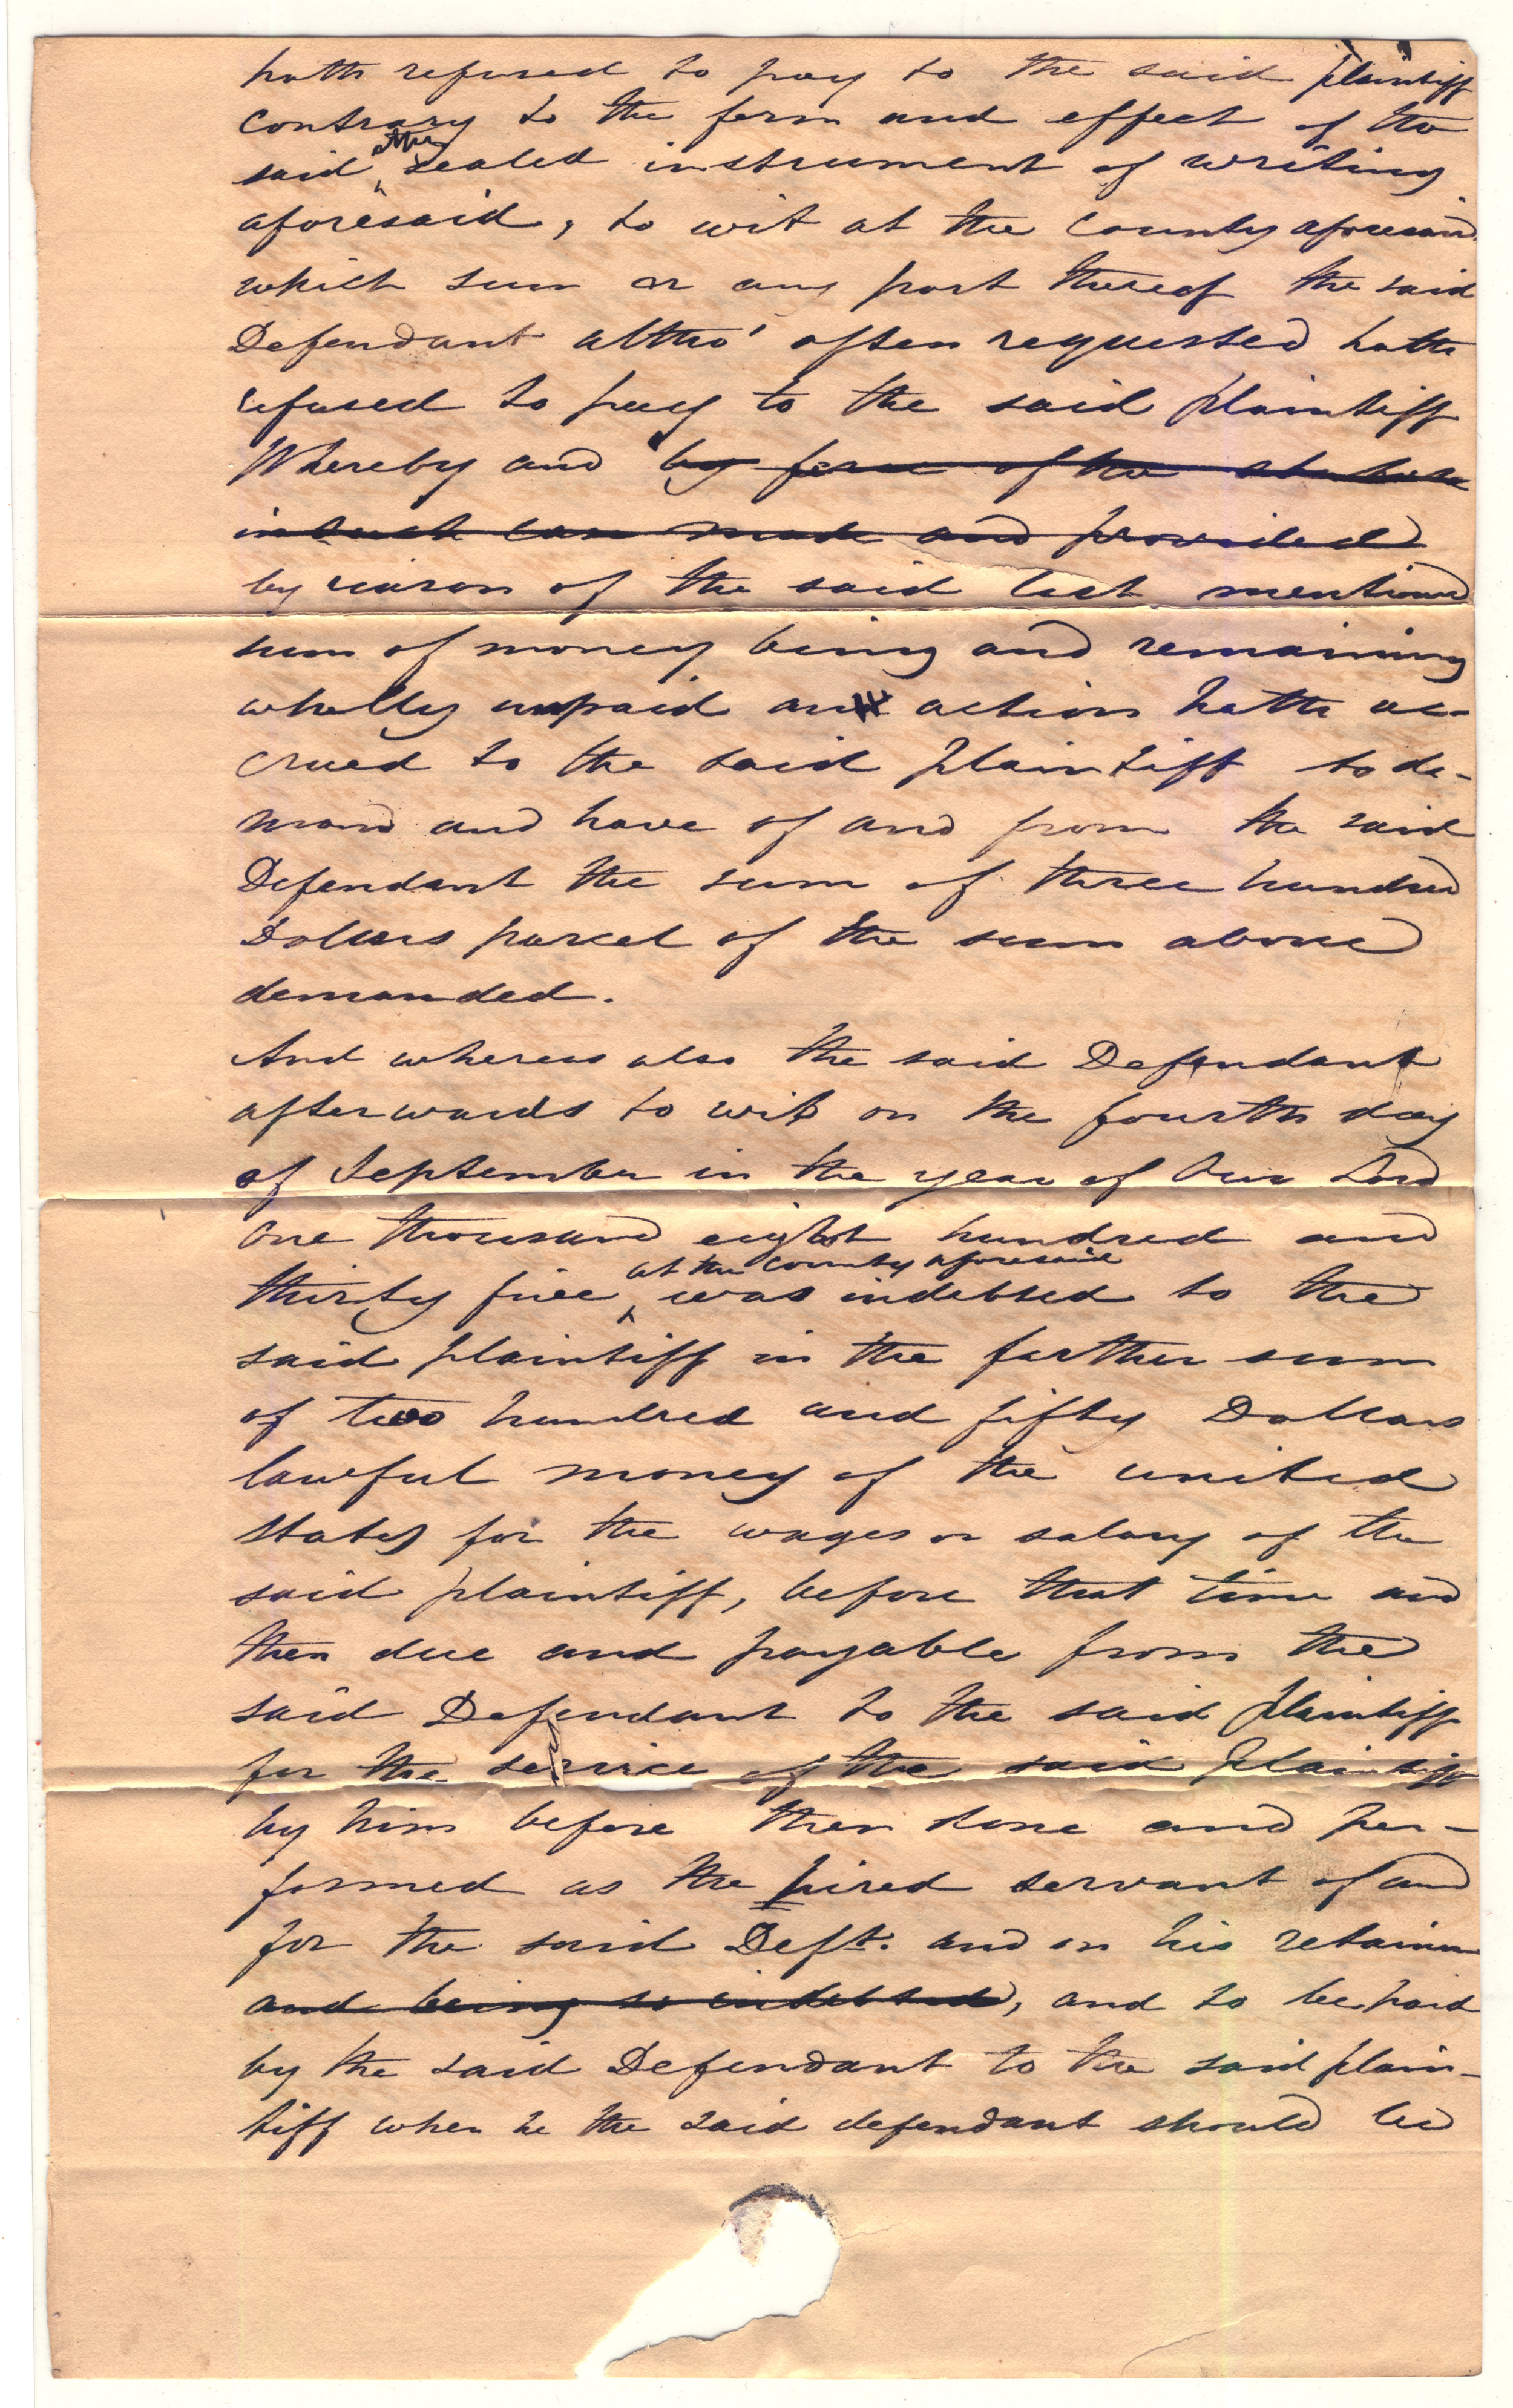 hath refused to pay to the said plaintiff
contrary to the form and effect of the
other
said sealed instrument of writing
aforesaid, to wit at the County aforesaid
which sum or any part thereof the said
Defendant altho' often requested hath
refused to pay to the said plaintiff
Whereby and by force of the statute
in such case made and provided
by reason of the said last mentioned
sum of money being and remaining
wholly unpaid an action hath ac-
crued to the said plaintiff to de-
mand and have of and from the said
Defendant the sum of three hundred
Dollars parcel of the sum above
demanded.
And whereas also the said Defendant
afterwards to wit on the fourth day
of September in the year of Our Lord
One thousand eight hundred and
at the County aforesaid
thirty five was indebted to the
said plaintiff in the further sum
of two hundred and fifty Dollars
lawful money of the united
States for the wages or salary of the
said plaintiff, before that time and
then due and payable from the
said Defendant to the said plaintiff
for the service of the said plaintiff
by him before then done and per-
formed as the hired servant of and
for the said Deft. and on his retainer
and being so indebted, and to be paid
by the said Defendant to the said plain-
tiff when he the said defendant should be